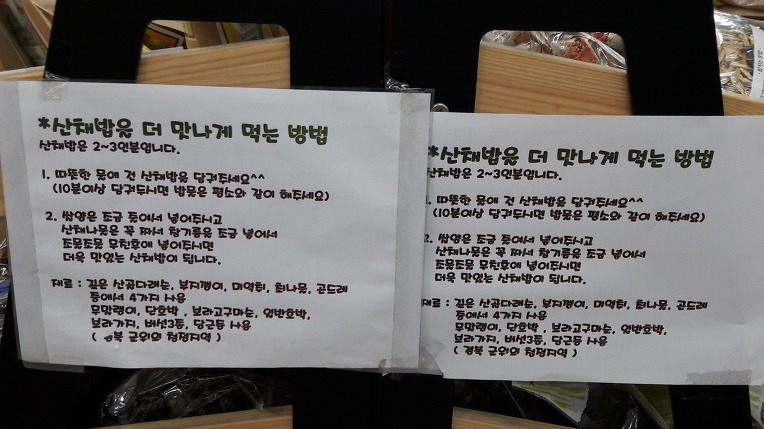 *산채밥을 더 맛나게 먹는 방법
산채밥은 2~3인분입니다.
1. 따뜻한 물에 건 산채밥을 담궈주세요^^
(10분이상 담궈두시면 밥물은 평소와 같이 해주세요)
2. 쌀양은 조금 줄여서 넣어주시고
산채나물은 꼭 짜서 참기름을 조금 넣어서
조물조물 무친후에 넣어주시면
더욱 맛있는 산채밥이 됩니다.
재료 : 깊은 산골다래순, 부지깽이, 미역취, 취나물, 곤드레
등에서 4가지 사용
무말랭이, 단호박 , 보라고구마순, 일반호박,
보라가지, 버섯3종, 당근등 사용
( 경북 군위의 청정지역 )
*산채밥을 더 맛나게 먹는 방법
산채밥은 2~3인분입니다.
1. 따뜻한 물에 건 산채밥을 담궈주세요^^
(10분이상 담궈두시면 밥물은 평소와 같이 해주세요)
2. 쌀양은 조금 줄여서 넣어주시고
산채나물은 꼭 짜서 참기름을 조금 넣어서
조물조물 무친후에 넣어주시면
더욱 맛있는 산채밥이 됩니다.
재료 : 깊은 산골다래순, 부지깽이, 미역취, 취나물, 곤드레
등에서 4가지 사용
무말랭이, 단호박 , 보라고구마순, 일반호박,
보라가지, 버섯3종, 당근등 사용
( 경북 군위의 청정지역 )